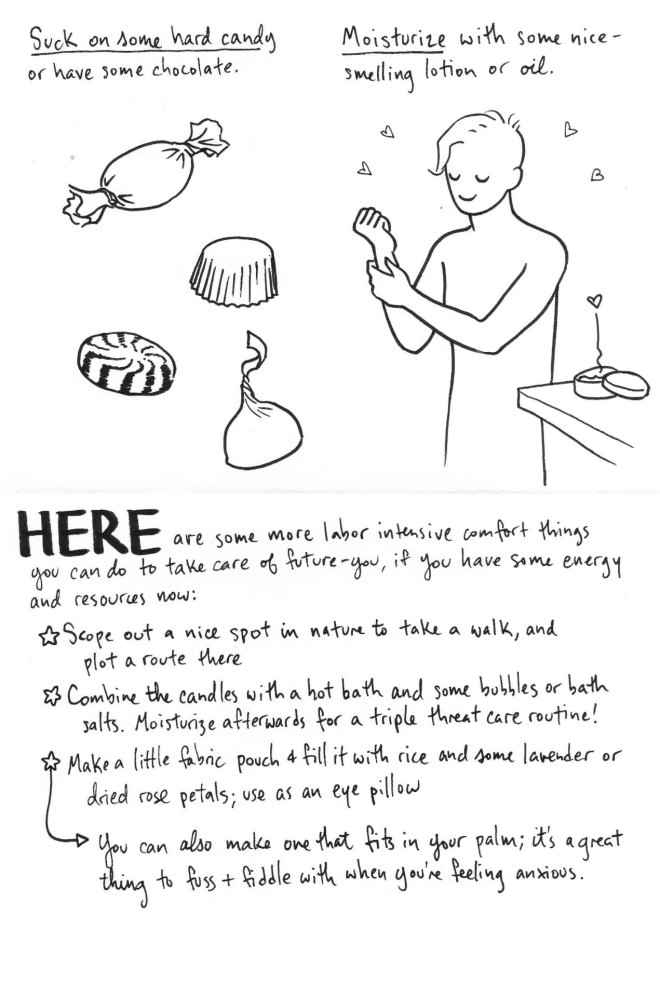 Suck on some hard candy
or have some chocolate.
Moisturize with some nice-
smelling lotion or oil.
HERE are some more labor intensive comfort things
you can do to take care of future-you, if you have some energy
and resources now:
☆ Scope out a nice spot in nature to take a walk, and
plot a route there
☆ Combine the candles with a hot bath and some bubbles or bath
salts. Moisturize afterwards for a triple threat care routine!
☆ Make a little fabric pouch & fill it with rice and some lavender or
dried rose petals; use as an eye pillow
You can also make one that fits in your palm; it's a great
thing to fuss + fiddle with when you're feeling anxious.